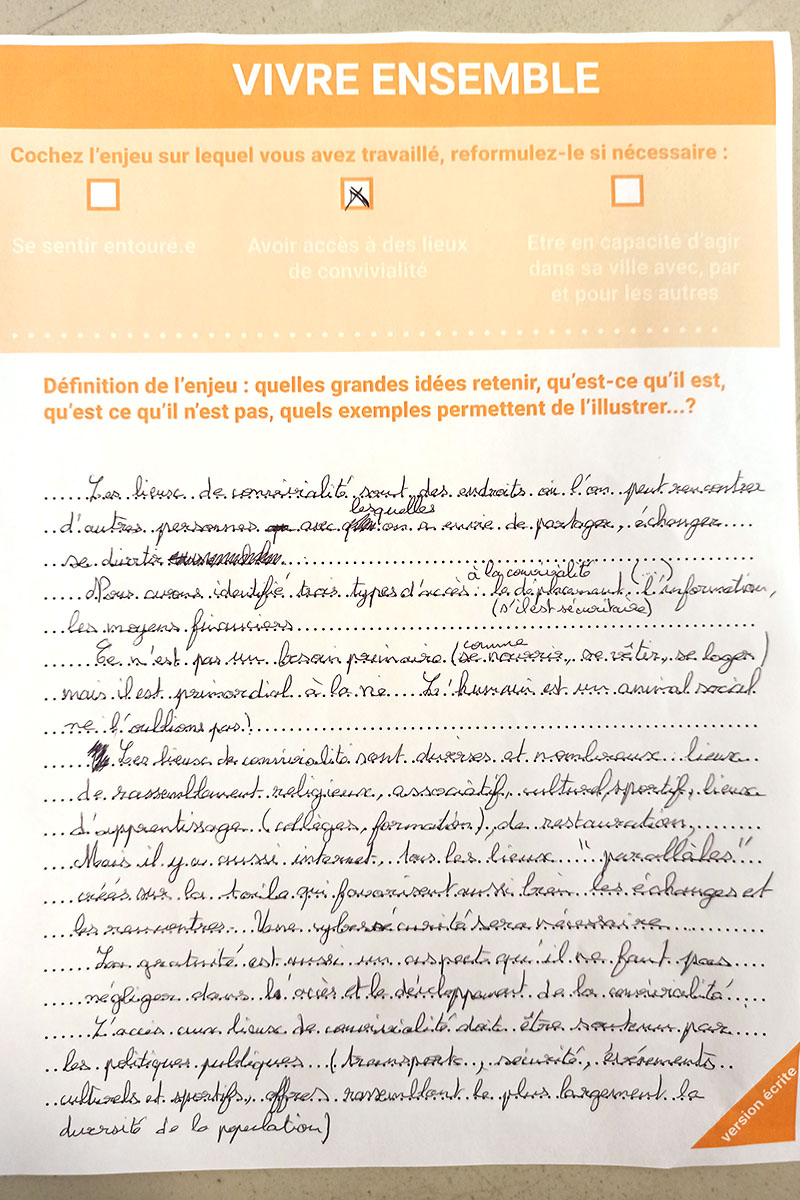 VIVRE ENSEMBLE
Cochez l'enjeu sur lequel vous avez travaillé, reformulez-le si nécessaire :
Se sentir entouré.e
Avoir accès à des lieux
de convivialité
Etre en capacité d'agir
dans sa ville avec, par
et pour les autres
Définition de l'enjeu : quelles grandes idées retenir, qu'est-ce qu'il est,
qu'est ce qu'il n'est pas, quels exemples permettent de l'illustrer...?
Les lieux de convivialité sont des endroits où l'on peut rencontrer
lesquelles
d'autres personnes avec on a envie de partager, échanger
se divertir
à la convivialité (...)
Nous avons identifié trois types d'accès : le déplacement, l'information,
(s'il est sécuritaire)
les moyens financiers
comme
Ce n'est pas un besoin primaire (se nourrir, se vêtir, se loger)
mais il est primordial à la vie. L'humain est un animal social
ne l'oublions pas !
Les lieux de convivialité sont divers et nombreux : lieux
de rassemblement religieux, associatif, culturel, sportif, lieux
d'apprentissage (collèges, formation), de restauration,
Mais il y a aussi internet, tous les lieux "parallèles"
créés sur la toile qui favorisent aussi bien les échanges et
les rencontres. Une cybersécurité sera nécessaire
La gratuité est aussi un aspect qu'il ne faut pas
négliger dans l'accès et le développement de la convivialité.
L'accès aux lieux de convivialité doit être soutenu par
les politiques publiques (transport, sécurité, événements
culturels et sportifs, offres rassemblant le plus largement la
diversité de la population)
version écrite